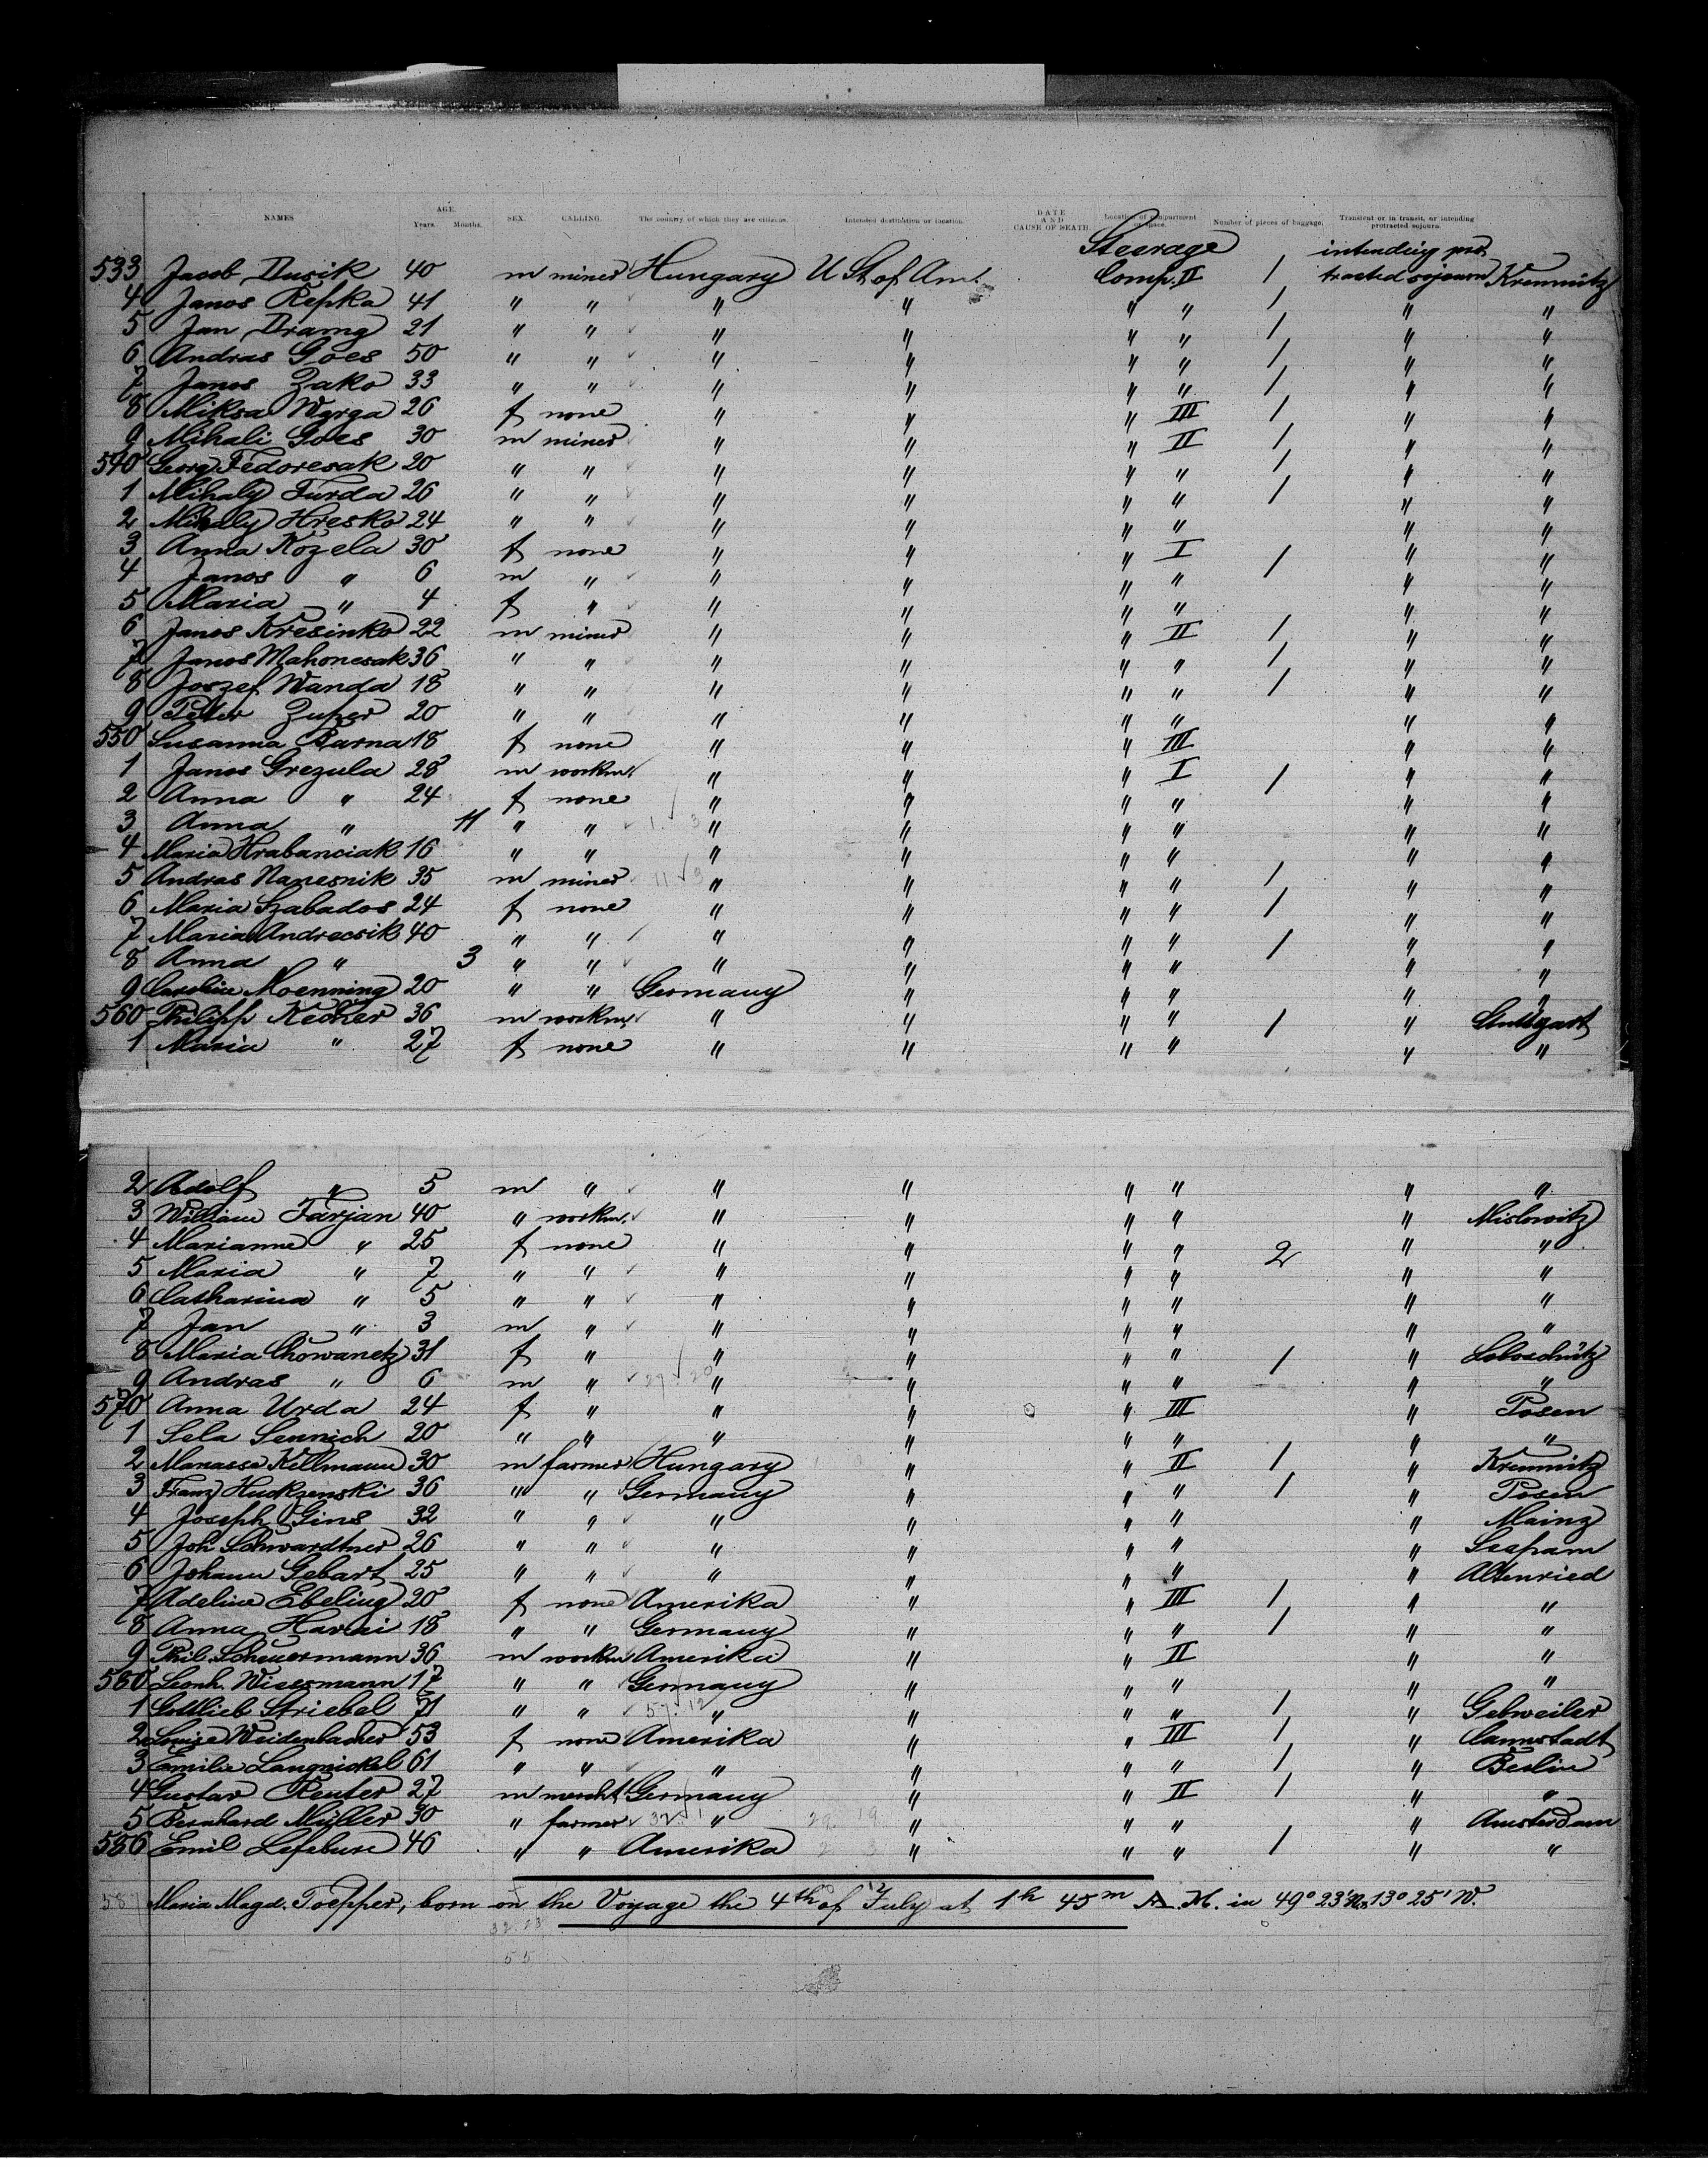 NAMES AGE. Years. Months. SEX. CALLING. The country of which they are citizens. Intended destination or location. DATE AND CAUSE OF DEATH. Location of compartment or space. Number of pieces of baggage. Transient or in transit, or intending protracted sojourn.
Steerage intending pro-
533 Jacob Dusik 40 m miner Hungary U St. of Am. Comp. II 1 tracted sojourn Kremnitz
4 Janos Repka 41 " " " " " " 1 " "
5 Jan Dramg 21 " " " " " " 1 " "
6 Andras Goes 50 " " " " " " 1 " "
7 Janos Zako 33 " " " " " " 1 " "
8 Miksa Warga 26 f none " " " III 1 " "
9 Mihali Goes 30 m miner " " " II 1 " "
540 Georg Fedoresak 20 " " " " " " 1 " "
1 Mihaly Furda 26 " " " " " " 1 " "
2 Mihaly Hresko 24 " " " " " " " "
3 Anna Kozela 30 f none " " " I 1 " "
4 Janos " 6 m " " " " " " "
5 Maria " 4 f " " " " " " "
6 Janos Kresinko 22 m miner " " " II 1 " "
7 Janos Mahonesak 36 " " " " " " 1 " "
8 Joszef Wanda 18 " " " " " " 1 " "
9 Peter Zuper 20 " " " " " " " "
550 Susanna Barna 18 f none " " " III " "
1 Janos Grezula 28 m workm. " " " I 1 " "
2 Anna " 24 f none " " " " " "
3 Anna " 11 " " " " " " " "
4 Maria Hrabanciak 16 " " " " " " " "
5 Andras Nanesnik 35 m miner " " " " 1 " "
6 Maria Szabados 24 f none " " " " 1 " "
7 Maria Andrecsik 40 " " " " " " 1 " "
8 Anna " 3 " " " " " " " "
9 Caroline Moenning 20 " " Germany " " " " "
560 Philipp Kecher 36 m workm. " " " " 1 " Stuttgart
1 Maria " 27 f none " " " " " "
2 Adolf " 5 m " " " " " " "
3 William Farjan 40 " workm. " " " " " Mislowitz
4 Marianne " 25 f none " " " " 2 " "
5 Maria " 7 " " " " " " " "
6 Catharina " 5 " " " " " " " "
7 Jan " 3 m " " " " " " "
8 Maria Chowanetz 31 f " " " " " 1 " Loboschütz
9 Andras " 6 m " " " " " " "
570 Anna Urda 24 f " " " " III " Posen
1 Sela Sennich 20 " " " " " " " "
2 Manasse Killmann 30 m farmer Hungary " " II 1 " Kremnitz
3 Franz Huckzenski 36 " " Germany " " " 1 " Posen
4 Joseph Gins 32 " " " " " " " Mainz
5 Joh. Schwardtner 26 " " " " " " "
6 Johann Gebart 25 " " " " " " " Altenried
7 Adeline Ebeling 20 f none Amerika " " III 1 " "
8 Anna Harai 18 " " Germany " " " 1 " "
9 Phil. Scheuermann 36 m workm. Amerika " " II " "
580 Leonh. Wisermann 17 " " Germany " " " " "
1 Gottlieb Striebel 71 " " " " " " 1 " Gebweiler
2 Louise Weidenbacher 53 f none Amerika " " III 1 " Cannstadt
3 Emilie Langnickel 61 " " " " " " 1 " Berlin
4 Gustav Reuter 27 m mercht. Germany " " II 1 " "
5 Bernhard Müller 30 " farmer " " " " " Amsterdam
586 Emil Lefebure 46 " " Amerika " " " 1 " "
587 Maria Magd. Toepper, born on the Voyage the 4th of July at 1h 45m A.M. in 49° 23' N. 13° 25' W.
32. 23
55